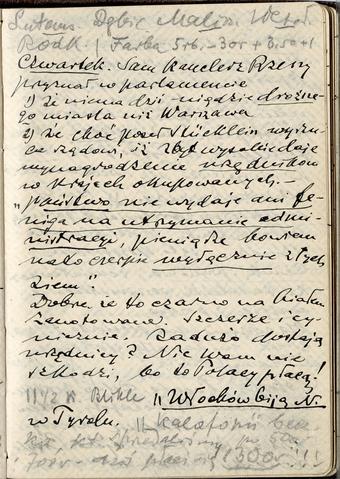 Dębic Malin.
Rodk | Farba 5 rb. - 30 r + 3.50 + 1
Czwartek. Sam kanclerz Rzeszy
przyznał w parlamencie
1) że niema dziś nigdzie drożne-
go miasta niż Warszawa
2) że choć poseł Stücklen
rządowi, iż zbyt wysokie daje
wynagrodzenie urzędnikom
w krajach okupowanych. —
„państwo nie wydaje ani fe-
niga na utrzymanie admi-
nistracyi, pieniądze bowiem
na to czerpie wyłącznie z tych
ziem".
Dobrze, że to czarno na białem
zanotowane. Szczerze i cy-
nicznie. Zadużo dostają
urzędnicy? Nic wam nie
szkodzi, bo to Polacy płacą!
1142 K. Blikle || Włochów biją N.
w Tyrolu. || kalafonii
po 50
płaci się 130 or!!!